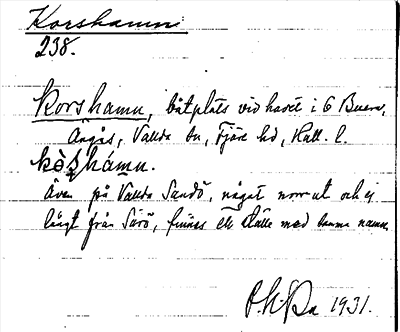 Korshamn:
238.
Korshamn, båtplats vid havet i G Buera,
Ängås, Vallda sn, Fjäre hd, Hall. l.
kòșhámn.
Även på Vallda Sandö, något norrut och ej
långt från Särö, finnes ett ställe med samma namn
1931.